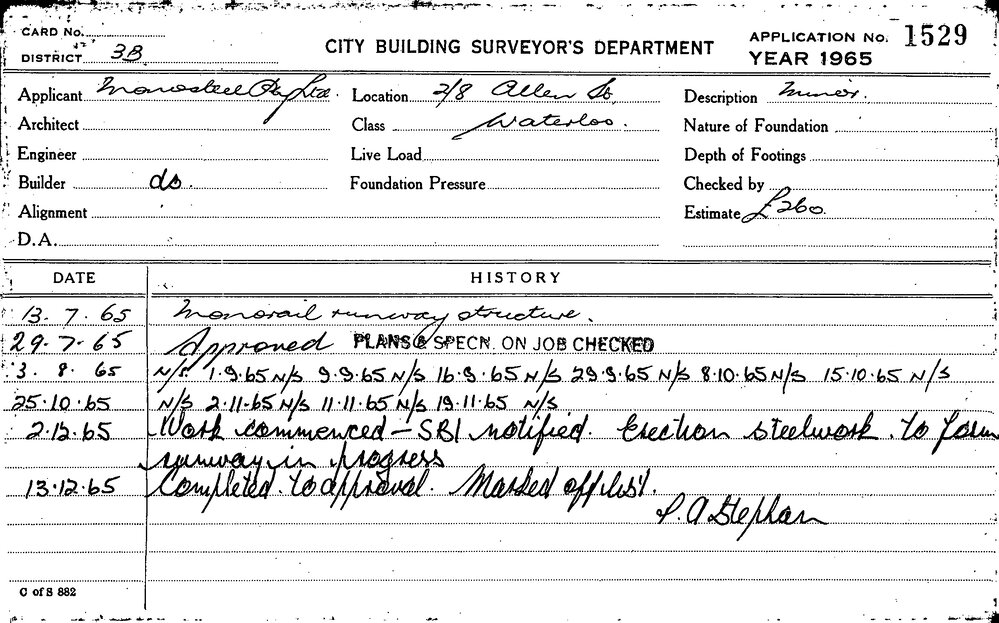 CARD No.
DISTRICT 3B
CITY BUILDING SURVEYOR'S DEPARTMENT
APPLICATION No. 1529
YEAR 1965
Applicant Monosteel Pty Ltd. Location 2/8 Allen St, Description Minor.
Architect Class Waterloo. Nature of Foundation
Engineer Live Load Depth of Footings
Builder do. Foundation Pressure Checked by
Alignment Estimate £260.
D.A.
DATE HISTORY
13. 7. 65 Monorail runway structure.
29. 7. 65 Approved PLANS & SPECN. ON JOB CHECKED
3. 8. 65 N/S 1.9.65 N/S 9.9.65 N/S 16.9.65 N/S 29.9.65 N/S 8.10.65 N/S 15.10.65 N/S
25.10.65 N/S 2.11.65 N/S 11.11.65 N/S 19.11.65 N/S
2.12.65 Work commenced - SBI notified. Erection steelwork. to form
runway in progress
13.12.65 Completed to approval. Marked off list.
A Stephan
C of S 882